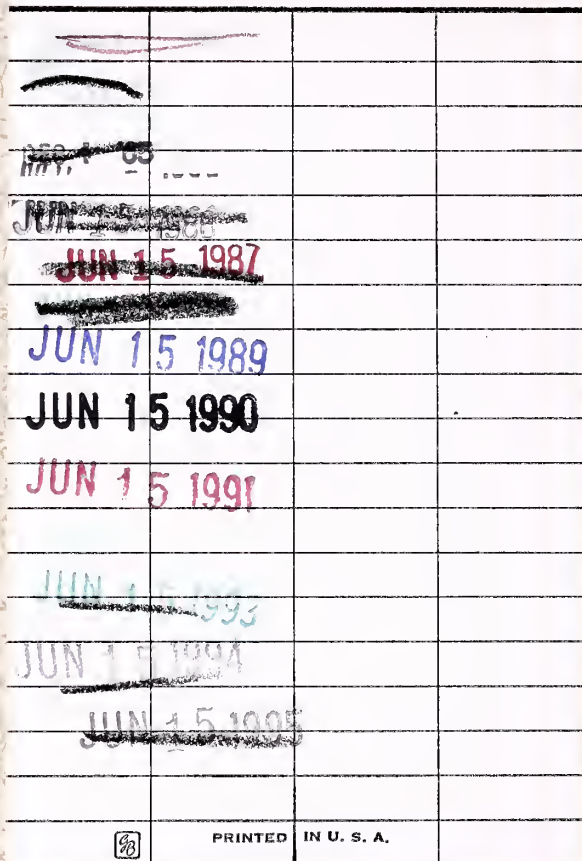 85
JUN 15 1986
JUN 15 1987
JUN 15 1989
JUN 15 1990
JUN 15 1991
JUN 15 1993
JUN 15 1994
JUN 15 1995
PRINTED IN U. S. A.